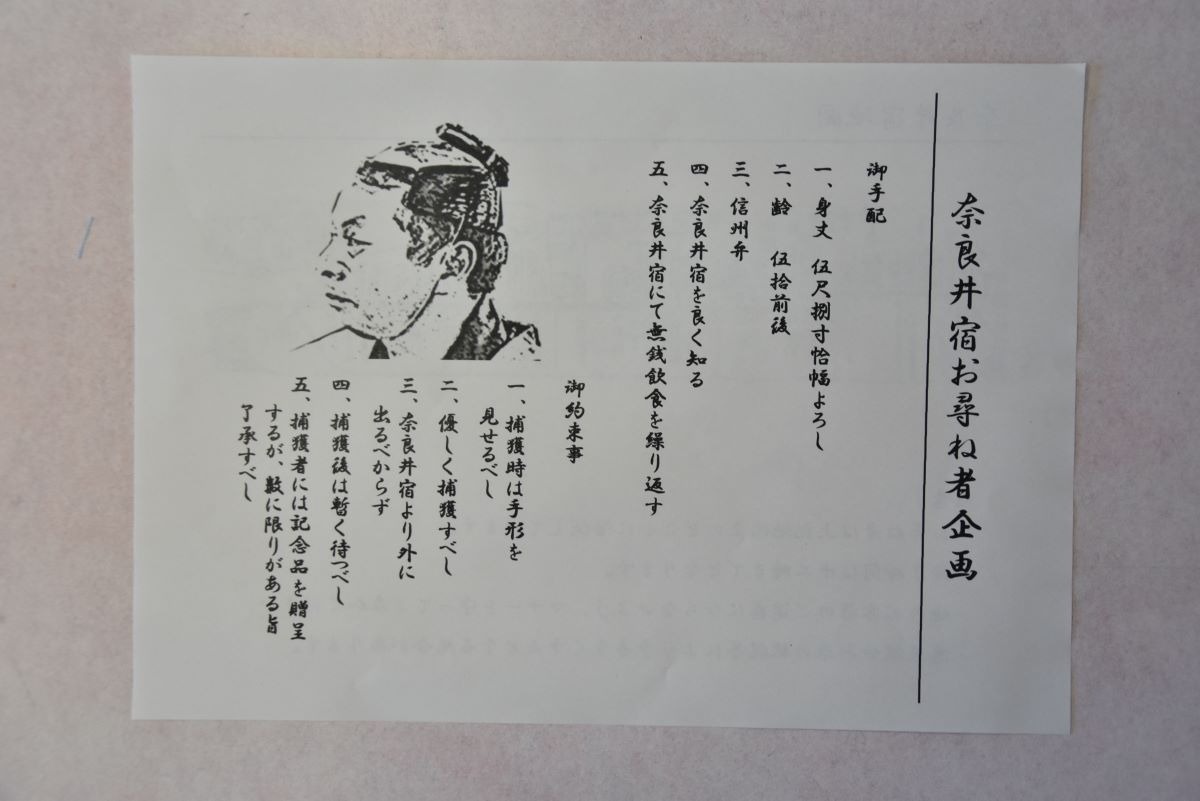 奈良井宿お尋ね者企画
御手配
一、身丈 伍尺捌寸恰幅よろし
二、齢 伍拾前後
三、信州弁
四、奈良井宿を良く知る
五、奈良井宿にて無銭飲食を繰り返す
御約束事
一、捕獲時は手形を
見せるべし
二、優しく捕獲すべし
三、奈良井宿より外に
出るべからず
四、捕獲後は暫く待つべし
五、捕獲者には記念品を贈呈
するが、数に限りがある旨
了承すべし